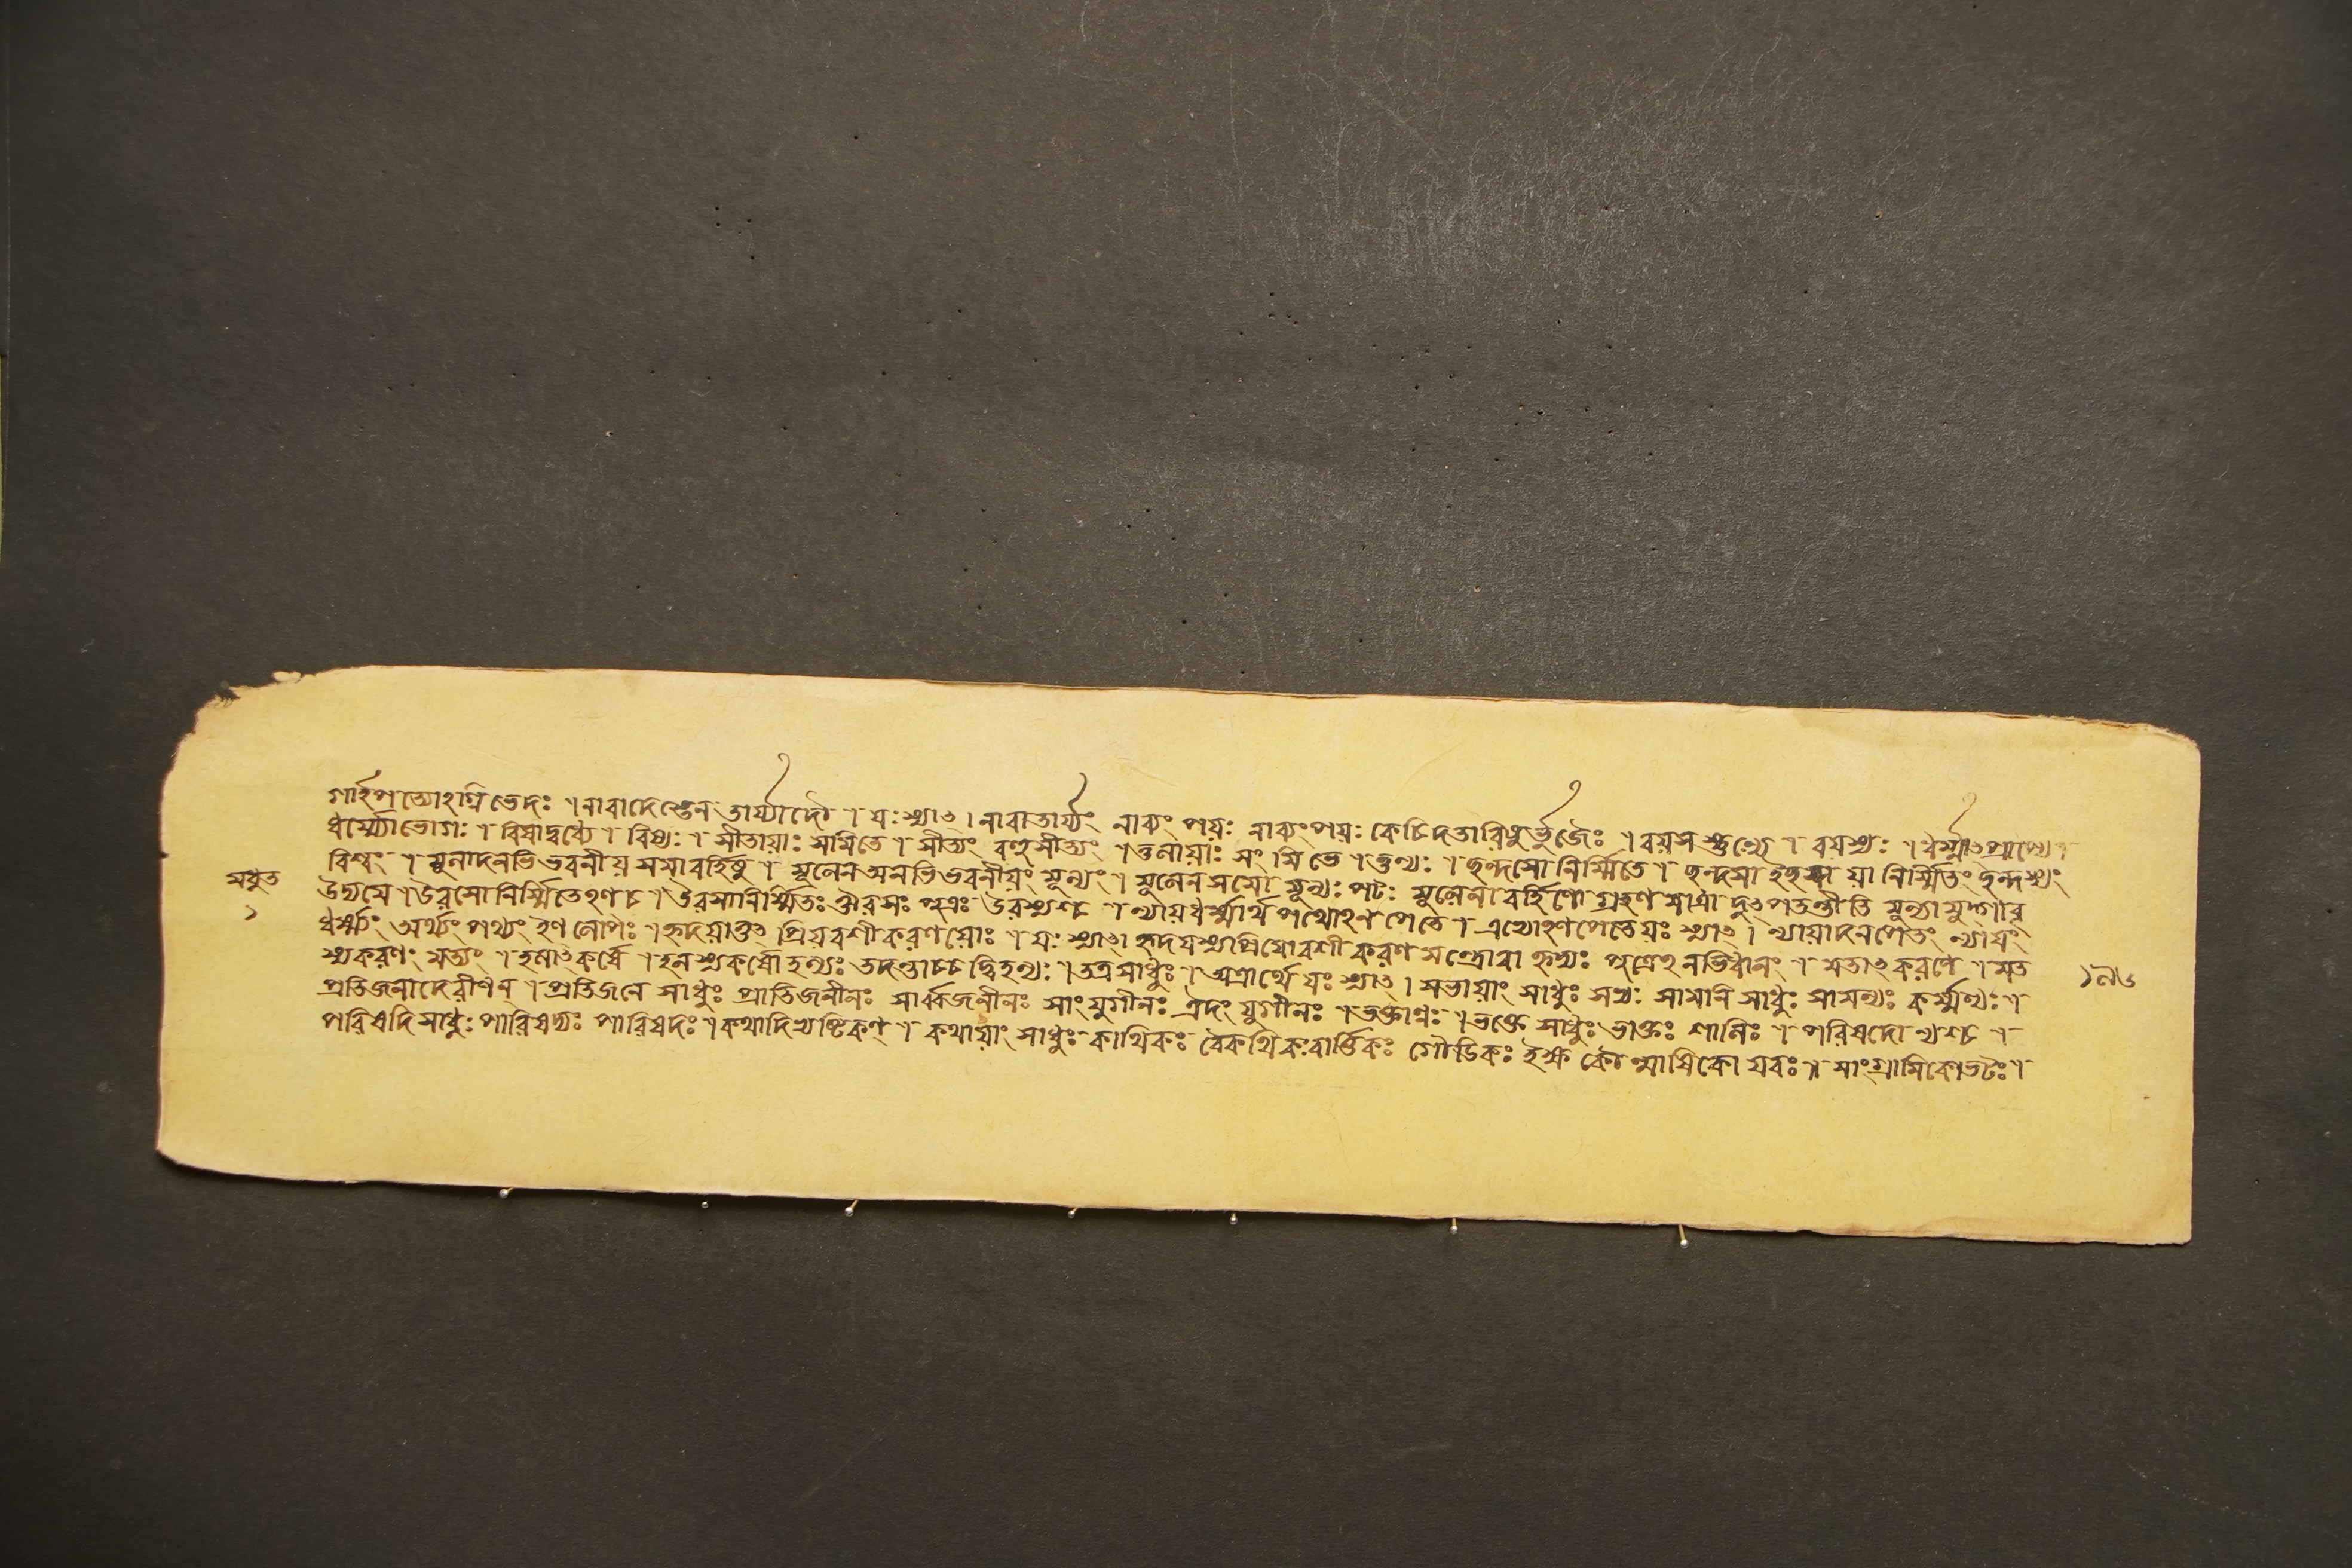 গার্হপত্যোঽগ্নিভেদঃ । নাবাদেস্তেন তার্য্যাদৌ । যঃ স্যাৎ । নাবাতার্য্যং নাব্যং পয়ঃ নাব্যংপয়ঃ কেচিদতারিষুর্ভুজৈঃ । বয়সস্তুল্যে । বয়স্যঃ । ধর্ম্মাৎপ্রাপ্যে ।
ধর্ম্ম্যোভোগঃ । বিষাদ্বধ্যে । বিষ্যঃ । সীতায়াঃ সমিতে । সীত্যং বহুসীত্যং । তুলায়াঃ সংমিতে । তুল্যঃ । ছন্দসো নির্ম্মিতে । ছন্দসা ইচ্ছয়া নির্ম্মিতং ছন্দস্যং
বিশ্বং । মূলাদনভিভবনীয় সমাবর্হিষু । মূলেন অনভিভবনীয়ং মূল্যং । মূলেনসমো মূল্যঃ পটঃ মূলেনাবর্হিণো গ্রহণমাত্রাদুৎপতন্তীতি মূল্যামুদ্গাবু
মধুত
১
উদ্যমে । উরসো নির্ম্মিতেঽণ চ । উরসানির্ম্মিতঃ ঔরসঃ পুত্রঃ উরস্যশ্চ । ন্যায়ধর্ম্মার্থ পথোঽনপেতে । এভ্যোঽণপেতেয়ঃ স্যাৎ । ন্যায়াদনপেতং ন্যায্যং
ধর্ম্ম্যং অর্থ্যং পথ্যং ইণ লোপঃ । হৃদয়াত্তু প্রিয়বশীকরণয়োঃ । যঃ স্যাৎ । হৃদয়স্যপ্রিয়োবশীকরণ মন্ত্রোবা হৃদ্যঃ পুত্রেঽনভিধানং । মতাৎকরণে । মত
স্যকরণং মত্যং । হলাৎকর্ষে । হলস্যকর্ষো হল্যঃ তদন্তাচ্চ দ্বিহল্যঃ । তত্রসাধুঃ । অত্রার্থে যঃ স্যাৎ । সভায়াং সাধুঃ সভ্যঃ সামনি সাধুঃ সামন্যঃ কর্ম্মণ্যঃ ।
১৭৬
প্রতিজনাদেরীণন্ । প্রতিজনে সাধুঃ প্রাতিজনীনঃ সার্ব্বজনীনঃ সাংযুগীনঃ ঐদংযুগীনঃ । ভক্তাণ্ণঃ । ভক্তে সাধুঃ ভাক্তঃ শালিঃ । পরিষদো ণ্যশ্চ ।
পরিষদি সাধুঃ পারিষদ্যঃ পারিষদঃ । কথাদিভ্যষ্টিকণ্ । কথায়াং সাধুঃ কাথিকঃ বৈকথিকঃবার্ত্তিকঃ গৌডিকঃ ইক্ষু কৌল্মাষিকো যবঃ ॥ সাংগ্রামিকোভটঃ ।